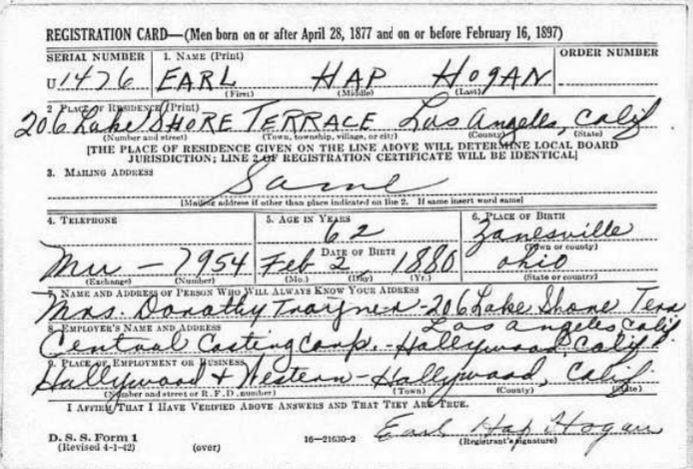 REGISTRATION CARD—(Men born on or after April 28, 1877 and on or before February 16, 1897)
SERIAL NUMBER 1. NAME (Print) ORDER NUMBER
U 1476 EARL HAP HOGAN
(First) (Middle) (Last)
2. PLACE OF RESIDENCE (Print)
206 Lake SHORE TERRACE Los Angeles, Calif
(Number and street) (Town, township, village, or city) (County) (State)
[THE PLACE OF RESIDENCE GIVEN ON THE LINE ABOVE WILL DETERMINE LOCAL BOARD
JURISDICTION; LINE 2 OF REGISTRATION CERTIFICATE WILL BE IDENTICAL]
3. MAILING ADDRESS
Same
[Mailing address if other than place indicated on line 2. If same insert word same]
4. TELEPHONE 5. AGE IN YEARS 6. PLACE OF BIRTH
62 Zanesville
DATE OF BIRTH (Town or county)
Mu — 7954 Feb 2 1880 Ohio
(Exchange) (Number) (Mo.) (Day) (Yr.) (State or country)
7. NAME AND ADDRESS OF PERSON WHO WILL ALWAYS KNOW YOUR ADDRESS
Mrs. Dorathy - 206 Lake Shore Terr
8. EMPLOYER'S NAME AND ADDRESS Los Angeles, Calif.
Central Casting Corp. - Hollywood, Calif
9. PLACE OF EMPLOYMENT OR BUSINESS
Hollywood + Western - Hollywood, Calif
(Number and street or R. F. D. number) (Town) (County) (State)
I AFFIRM THAT I HAVE VERIFIED ABOVE ANSWERS AND THAT THEY ARE TRUE.
Earl Hap Hogan
D. S. S. Form 1 16—21630-2 (Registrant's signature)
(Revised 4-1-42) (over)